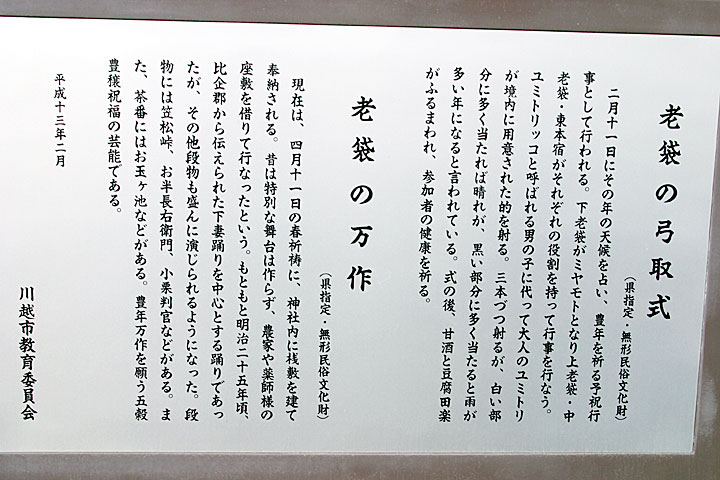 老袋の弓取式
（県指定・無形民俗文化財）
二月十一日にその年の天候を占い、豊年を祈る予祝行
事として行われる。下老袋がミヤモトとなり上老袋・中
老袋・東本宿がそれぞれの役割を持って行事を行なう。
ユミトリッコと呼ばれる男の子に代って大人のユミトリ
が境内に用意された的を射る。三本づつ射るが、白い部
分に多く当たれば晴れが、黒い部分に多く当たると雨が
多い年になると言われている。式の後、甘酒と豆腐田楽
がふるまわれ、参加者の健康を祈る。
老袋の万作
（県指定・無形民俗文化財）
現在は、四月十一日の春祈祷に、神社内に桟敷を建て
奉納される。昔は特別な舞台は作らず、農家や薬師様の
座敷を借りて行なったという。もともと明治二十五年頃、
比企郡から伝えられた下妻踊りを中心とする踊りであっ
たが、その他段物も盛んに演じられるようになった。段
物には笠松峠、お半長右衛門、小栗判官などがある。ま
た、茶番にはお玉ヶ池などがある。豊年万作を願う五穀
豊穣祝福の芸能である。
平成十三年二月
川越市教育委員会